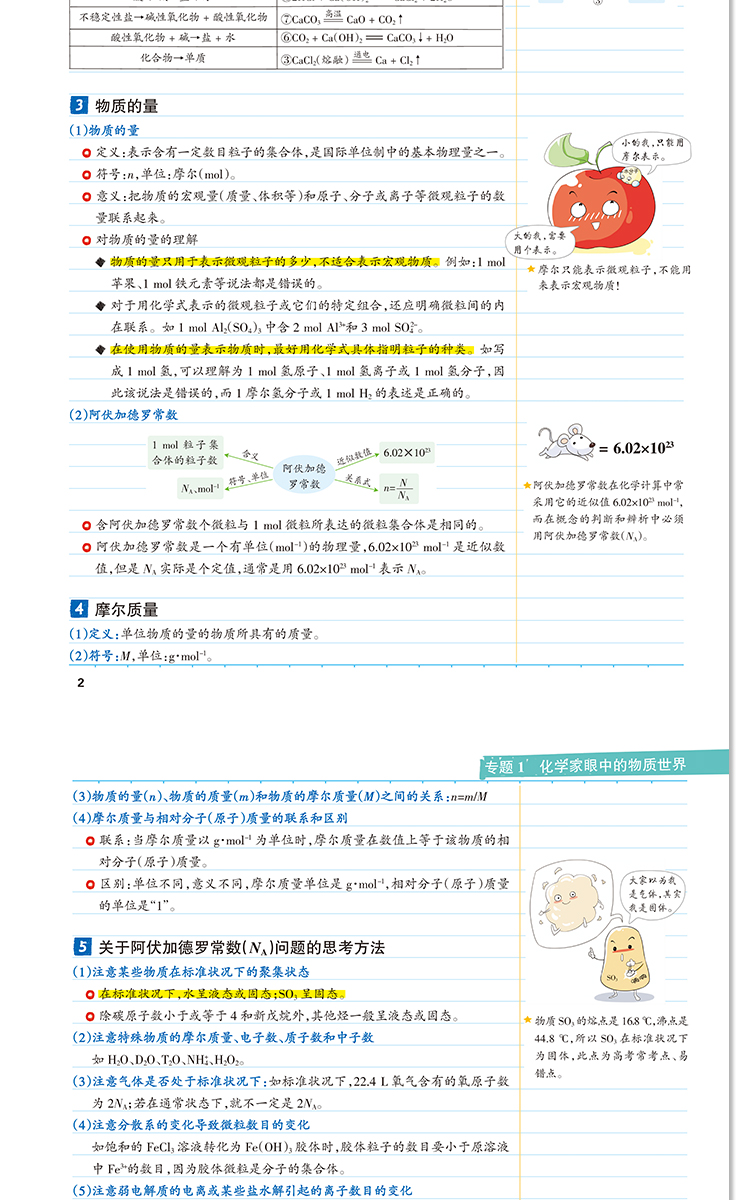 不稳定性盐→碱性氧化物 + 酸性氧化物 ⑦CaCO₃ 高温 CaO + CO₂↑
酸性氧化物 + 碱→盐 + 水 ⑥CO₂ + Ca(OH)₂ ══ CaCO₃↓ + H₂O
化合物→单质 ③CaCl₂(熔融) 通电 Ca + Cl₂↑
3 物质的量
(1)物质的量
定义:表示含有一定数目粒子的集合体,是国际单位制中的基本物理量之一。
符号:n,单位:摩尔(mol)。
意义:把物质的宏观量(质量、体积等)和原子、分子或离子等微观粒子的数
量联系起来。
对物质的量的理解
◆ 物质的量只用于表示微观粒子的多少,不适合表示宏观物质。例如:1 mol
苹果、1 mol 铁元素等说法都是错误的。
◆ 对于用化学式表示的微观粒子或它们的特定组合,还应明确微粒间的内
在联系。如 1 mol Al₂(SO₄)₃ 中含 2 mol Al³⁺和 3 mol SO₄²⁻。
◆ 在使用物质的量表示物质时,最好用化学式具体指明粒子的种类。如写
成 1 mol 氢,可以理解为 1 mol 氢原子、1 mol 氢离子或 1 mol 氢分子,因
此该说法是错误的,而 1 摩尔氢分子或 1 mol H₂ 的表述是正确的。
小的我,只能用
摩尔表示。
大的我,需要
用个表示。
★ 摩尔只能表示微观粒子,不能用
来表示宏观物质!
(2)阿伏加德罗常数
1 mol 粒子集
合体的粒子数
含义
阿伏加德
罗常数
近似数值
6.02×10²³
N_A、mol⁻¹
符号、单位
关系式
n=N/N_A
= 6.02×10²³
★阿伏加德罗常数在化学计算中常
采用它的近似值 6.02×10²³ mol⁻¹,
而在概念的判断和辨析中必须
用阿伏加德罗常数(N_A)。
含阿伏加德罗常数个微粒与 1 mol 微粒所表达的微粒集合体是相同的。
阿伏加德罗常数是一个有单位(mol⁻¹)的物理量,6.02×10²³ mol⁻¹ 是近似数
值,但是 N_A 实际是个定值,通常是用 6.02×10²³ mol⁻¹ 表示 N_A。
4 摩尔质量
(1)定义:单位物质的量的物质所具有的质量。
(2)符号:M,单位:g·mol⁻¹。
2
专题 1 化学家眼中的物质世界
(3)物质的量(n)、物质的质量(m)和物质的摩尔质量(M)之间的关系:n=m/M
(4)摩尔质量与相对分子(原子)质量的联系和区别
联系:当摩尔质量以 g·mol⁻¹ 为单位时,摩尔质量在数值上等于该物质的相
对分子(原子)质量。
区别:单位不同,意义不同,摩尔质量单位是 g·mol⁻¹,相对分子(原子)质量
的单位是“1”。
大家以为我
是气体,其实
我是固体。
SO₃
5 关于阿伏加德罗常数(N_A)问题的思考方法
(1)注意某些物质在标准状况下的聚集状态
在标准状况下,水呈液态或固态;SO₃ 呈固态。
除碳原子数小于或等于 4 和新戊烷外,其他烃一般呈液态或固态。
(2)注意特殊物质的摩尔质量、电子数、质子数和中子数
如 H₂O、D₂O、T₂O、NH₄⁺、H₂O₂。
★ 物质 SO₃ 的熔点是 16.8 ℃,沸点是
44.8 ℃,所以 SO₃ 在标准状况下
为固体,此点为高考常考点、易
错点。
(3)注意气体是否处于标准状况下:如标准状况下,22.4 L 氧气含有的氧原子数
为 2N_A;若在通常状态下,就不一定是 2N_A。
(4)注意分散系的变化导致微粒数目的变化
如饱和的 FeCl₃ 溶液转化为 Fe(OH)₃ 胶体时,胶体粒子的数目要小于原溶液
中 Fe³⁺的数目,因为胶体微粒是分子的集合体。
(5)注意弱电解质的电离或某些盐水解引起的离子数目的变化